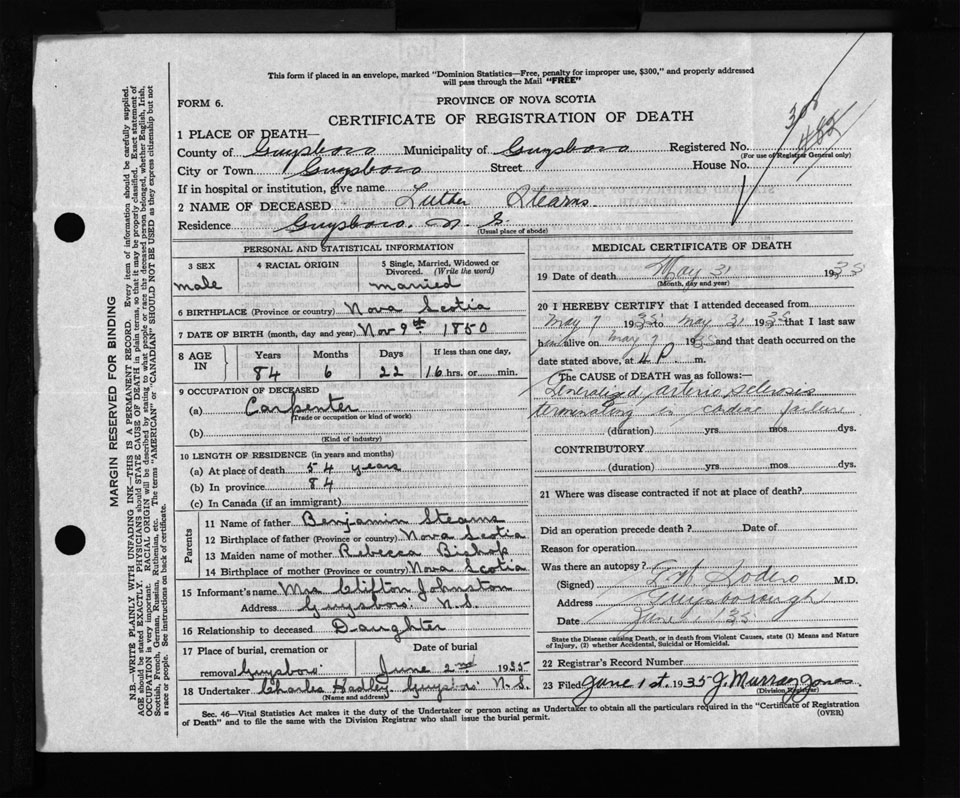 This form if placed in an envelope, marked "Dominion Statistics—Free, penalty for improper use, $300," and properly addressed
will pass through the Mail "FREE"
FORM 6.
PROVINCE OF NOVA SCOTIA
CERTIFICATE OF REGISTRATION OF DEATH
1 PLACE OF DEATH—
County of Guysboro Municipality of Guysboro Registered No.
(For use of Registrar General only)
482
City or Town Guysboro Street House No.
If in hospital or institution, give name
2 NAME OF DECEASED Luther Stearns
Residence Guysboro. N S.
(Usual place of abode)
PERSONAL AND STATISTICAL INFORMATION
3 SEX
male
4 RACIAL ORIGIN
5 Single, Married, Widowed or
Divorced. (Write the word)
married
6 BIRTHPLACE (Province or country) Nova Scotia
7 DATE OF BIRTH (month, day and year) Nov 9th 1850
8 AGE IN
Years Months Days If less than one day,
84 6 22 16 hrs. or min.
9 OCCUPATION OF DECEASED
(a) Carpenter
(Trade or occupation or kind of work)
(b)
(Kind of industry)
10 LENGTH OF RESIDENCE (in years and months)
(a) At place of death 54 years
(b) In province 84
(c) In Canada (if an immigrant)
Parents
11 Name of father Benjamin Stearns
12 Birthplace of father (Province or country) Nova Scotia
13 Maiden name of mother Rebecca Bishop
14 Birthplace of mother (Province or country) Nova Scotia
15 Informant's name Mrs Clifton Johnston
Address Guysboro. N.S.
16 Relationship to deceased Daughter
17 Place of burial, cremation or Date of burial
removal Guysboro June 2nd 1935
18 Undertaker Charles Hadley Guysboro N.S.
(Name and address)
MEDICAL CERTIFICATE OF DEATH
19 Date of death May 31 1935
(Month, day and year)
20 I HEREBY CERTIFY that I attended deceased from
May 7 1935 to May 31 1935 that I last saw
him alive on May 7 1935 and that death occurred on the
date stated above, at 4 P. m.
The CAUSE OF DEATH was as follows:—
Generalized arterio sclerosis
terminating in cardiac failure
(duration) yrs. mos. dys.
CONTRIBUTORY
(duration) yrs. mos. dys.
21 Where was disease contracted if not at place of death?
Did an operation precede death? Date of
Reason for operation
Was there an autopsy?
(Signed) Sodero M.D.
Address Guysborough
Date June 1 35
State the Disease causing Death, or in death from Violent Causes, state (1) Means and Nature
of Injury, (2) whether Accidental, Suicidal or Homicidal.
22 Registrar's Record Number
23 Filed June 1st. 1935 J. Murray Jones
(Division Registrar)
Sec. 46—Vital Statistics Act makes it the duty of the Undertaker or person acting as Undertaker to obtain all the particulars required in the "Certificate of Registration
of Death" and to file the same with the Division Registrar who shall issue the burial permit.
(OVER)
MARGIN RESERVED FOR BINDING
N.B.—WRITE PLAINLY WITH UNFADING INK—THIS IS A PERMANENT RECORD. Every item of information should be carefully supplied.
AGE should be stated EXACTLY. PHYSICIANS should STATE CAUSE OF DEATH in plain terms, so that it may be properly classified. Exact statement of
OCCUPATION is very important. RACIAL ORIGIN will be described by stating to what people or race the deceased person belonged, whether English, Irish,
Scottish, French, German, Russian, Ruthenian, etc. The terms "AMERICAN" or "CANADIAN" SHOULD NOT BE USED as they express citizenship but not
a race or people. See instructions on back of certificate.